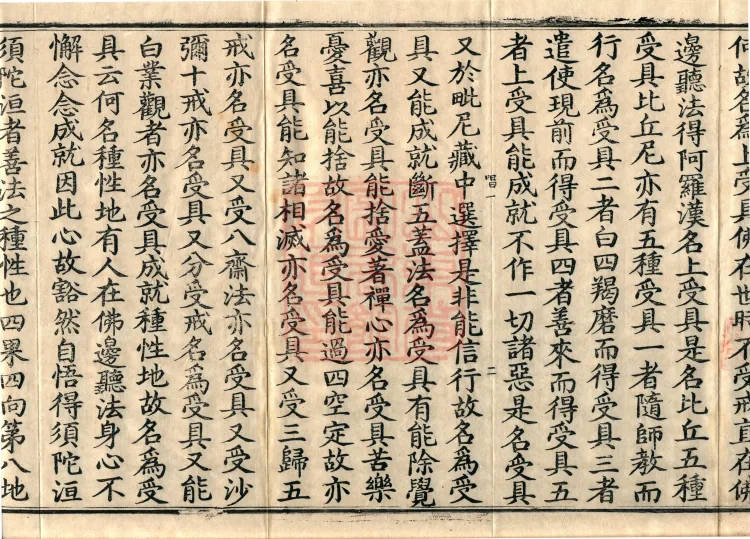 何故名為上受具佛在世時不受戒直在佛
邊聽法得阿羅漢名上受具是名比丘五種
受具比丘尼亦有五種受具一者隨師教而
行名為受具二者白四羯磨而得受具三者
遣使現前而得受具四者善來而得受具五
者上受具能成就不作一切諸惡是名受具
唱一 二
又於毗尼藏中選擇是非能信行故名為受
具又能成就斷五蓋法名為受具有能除覺
觀亦名受具能捨愛著禪心亦名受具苦樂
憂喜以能捨故名為受具能過四空定故亦
名受具能知諸相滅亦名受具又受三歸五
戒亦名受具又受八齋法亦名受具又受沙
彌十戒亦名受具又分受戒名為受具又能
白業觀者亦名受具成就種性地故名為受
具云何名種性地有人在佛邊聽法身心不
懈念念成就因此心故豁然自悟得須陀洹
須陀洹者善法之種性也四果四向第八地